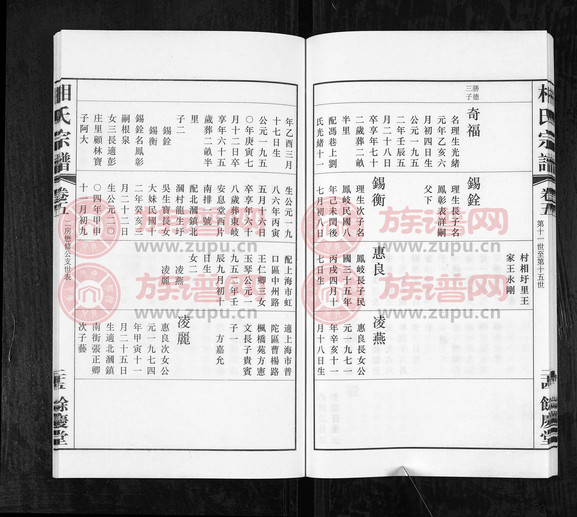 相氏宗譜
卷五
第十一世至第十五世
餘慶堂
村相圩里王
家王永剛
勝德
三子
奇福
名理生光緒
元年乙亥六
月初四日生
公元一九五
二年壬辰五
月二十八日
卒享年七十
二歲葬二畝
半里
配馮巷上劉
氏光緒十一
錫銓
理生長子名
鳳彰表詳嗣
父下
錫衡
理生次子名
鳳岐民國八
年己未閏後
七月初八日
惠良
鳳岐長子民
國三十五年
丙戌四月十
七日生
凌燕
惠良長女公
元一九七一
年辛亥十一
月十八日生
年乙酉三月
十七日生
公元一九五
〇年庚寅七
月十二日卒
享年六十五
歲葬二畝半
里
子二
錫銓
錫衡
錫銓名鳳彰
嗣根泉
女三長適彭
庄里顧林寶
子阿大
生公元一九
八六年丙寅
五月十六日
卒享年六十
八歲葬東岐
安息堂西片
南排一號
配北涸鎮
涸村龍生圩
吳生寶長女
大妹民國十
二年癸亥三
月二十三日
生公元二〇
〇四年甲申
十月初九
配上海市虹
口區中州路
王仁卿三女
玉琴公元一
九五年
辰九月初十
日生
女二
凌燕
凌麗
適上海市普
陀區曹楊路
楓橋苑方憲
文長子貴賓
子一
方嘉允
凌麗
惠良次女公
元一九七四
年甲寅十一
月二十五日
生適北涸鎮
南街張正卿
次子藝
相氏宗譜
卷五
餘慶堂
族谱网
www.zupu.cn